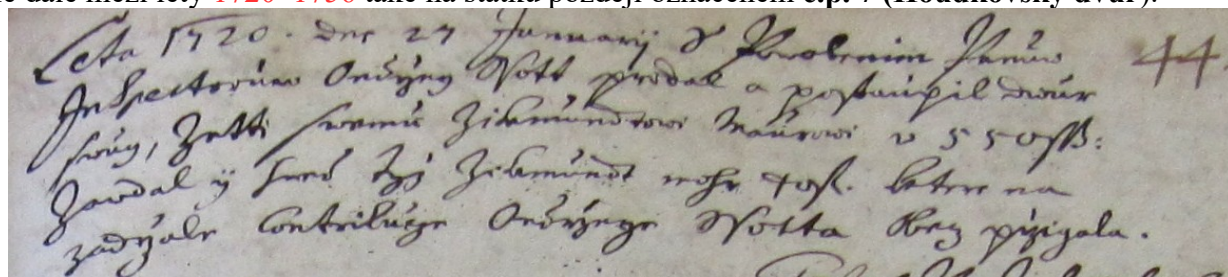 mezi lety 1720-1730 také na statku později označeném č.p. 7 (Houdkovský dvůr).
Leta 1720. den 27 January S Powolenim Panuw 44.
Inspectoruw Ondržeg Wott prodal a postaupil dwur
swug, Zetti swemu Zikmundowi Maurowi v 550 ß:
Zawdal y hned týž Zikmundt
zadržale Contribuge Ondržege Wotta Obecz przigala.